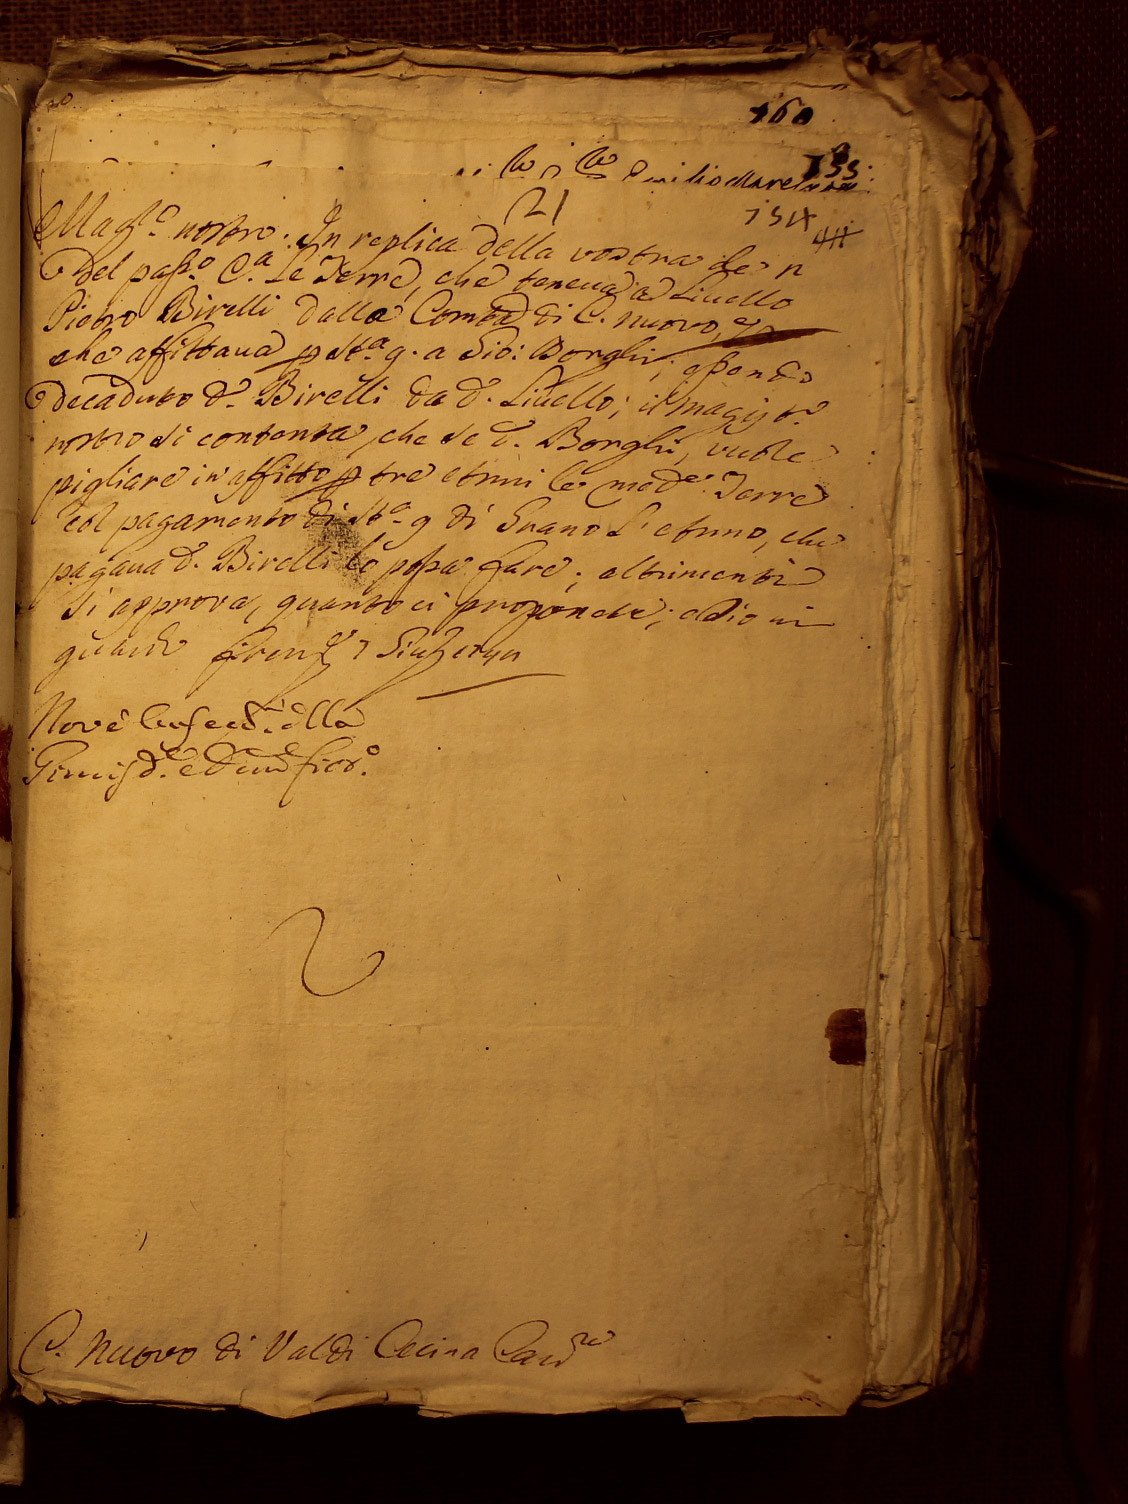 160
155
21
154
Mag.co nostro. In replica della vostra de n
del pass.o C.a Le Terre, che teneva a Livello
Pietro Birelli dalla Com.tà di C. nuovo,
che affittava p st.a 9. a Gio: Borghi;
decaduto d.o Birelli da d.o Livello; il Magist.o
nostro si contenta, che se d.o Borghi, vuole
pigliare in affitto p tre Anni le med.e Terre
col pagamento di st.a 9 di Grano l' Anno, che
pagava d.o Birelli lo possa fare; altrimenti
si approva, quanto ci proponete; e Dio vi
guardi
Nove
C. Nuovo di Val di Cecina Canc.re